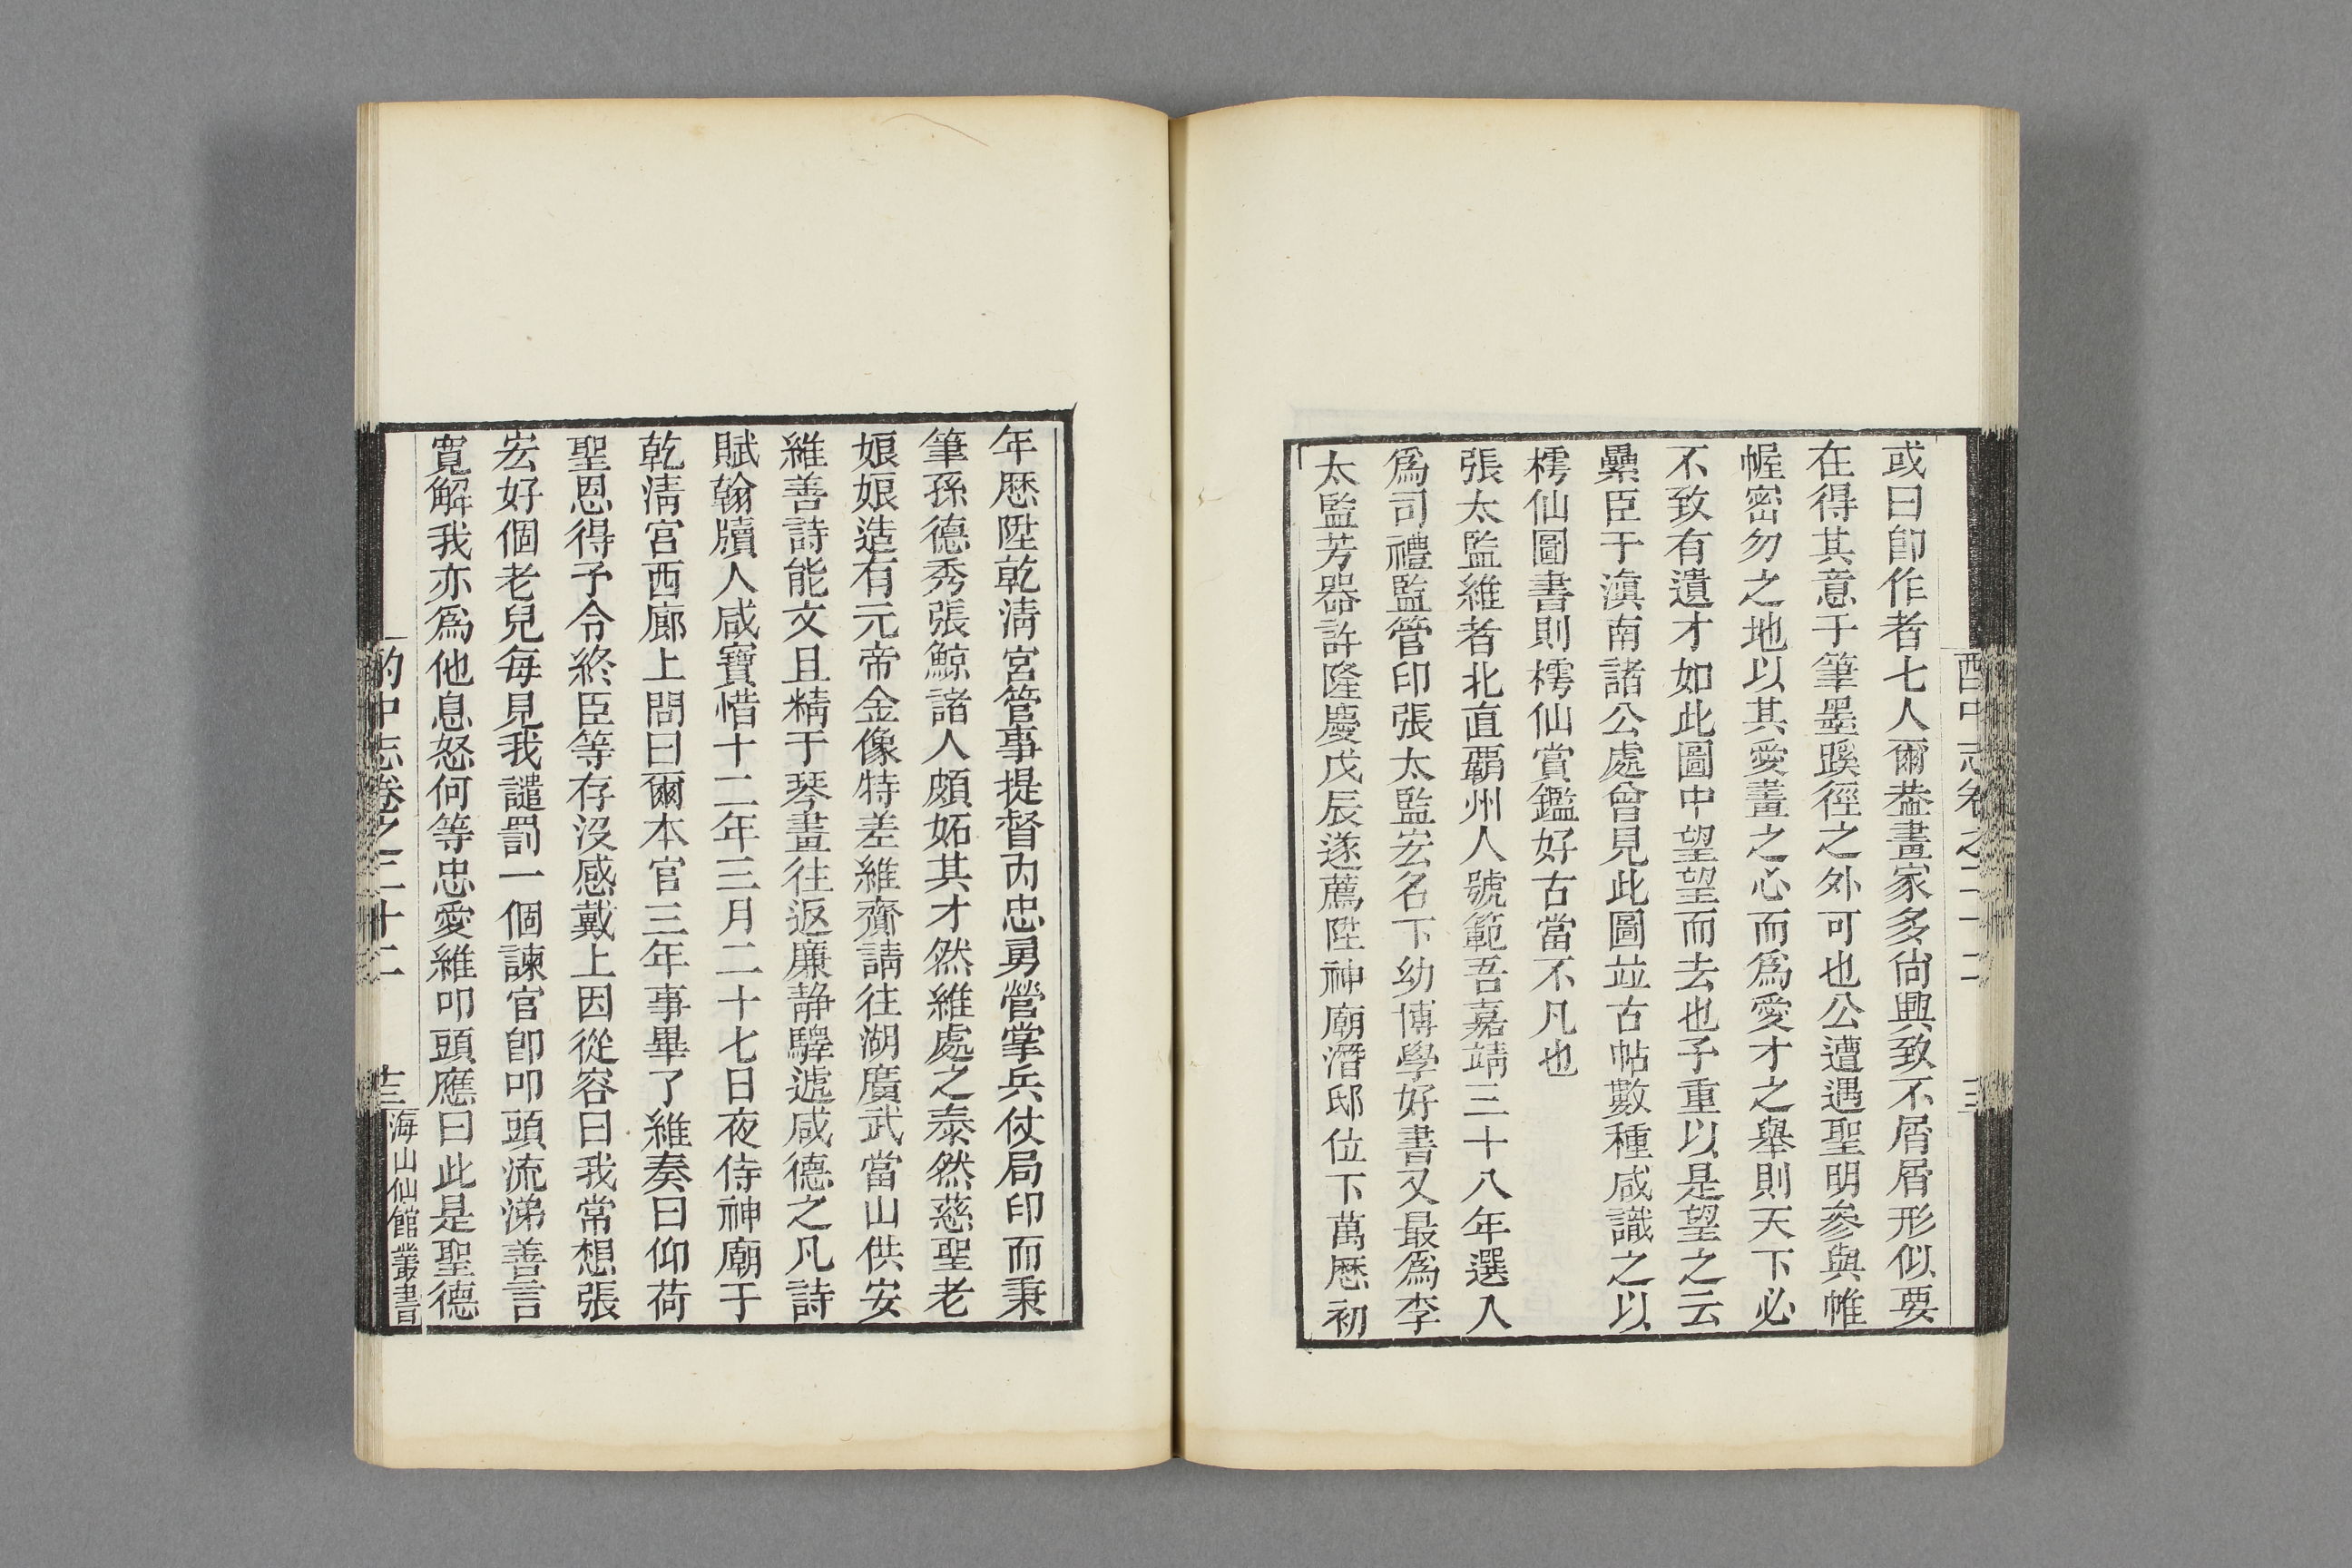 或曰卽作者七人爾葢畫家多尙興致不屑屑形似要
在得其意于筆墨蹊徑之外可也公遭遇聖明參與帷
幄密勿之地以其愛畫之心而爲愛才之舉則天下必
不致有遺才如此圖中望望而去也予重以是望之云
纍臣于滇南諸公處曾見此圖並古帖數種咸識之以
樗仙圖書則樗仙賞鑑好古當不凡也
張太監維者北直覇州人號範吾嘉靖三十八年選入
爲司禮監管印張太監宏名下幼博學好書又最爲李
太監芳器許隆慶戊辰遂薦陞神廟潛邸位下萬厯初
年厯陞乾淸宮管事提督內忠勇營掌兵仗局印而秉
筆孫德秀張鯨諸人頗妬其才然維處之泰然慈聖老
娘娘造有元帝金像特差維齎請往湖廣武當山供安
維善詩能文且精于琴畫往返廉静驛遞咸德之凡詩
賦翰牘人咸寶惜十二年三月二十七日夜侍神廟于
乾淸宮西廊上問曰爾本官三年事畢了維奏曰仰荷
聖恩得予令終臣等存沒感戴上因從容曰我常想張
宏好個老兒每見我譴罰一個諫官卽叩頭流涕善言
寬解我亦爲他息怒何等忠愛維叩頭應曰此是聖德
酌中志卷之二十二
海山仙館叢書